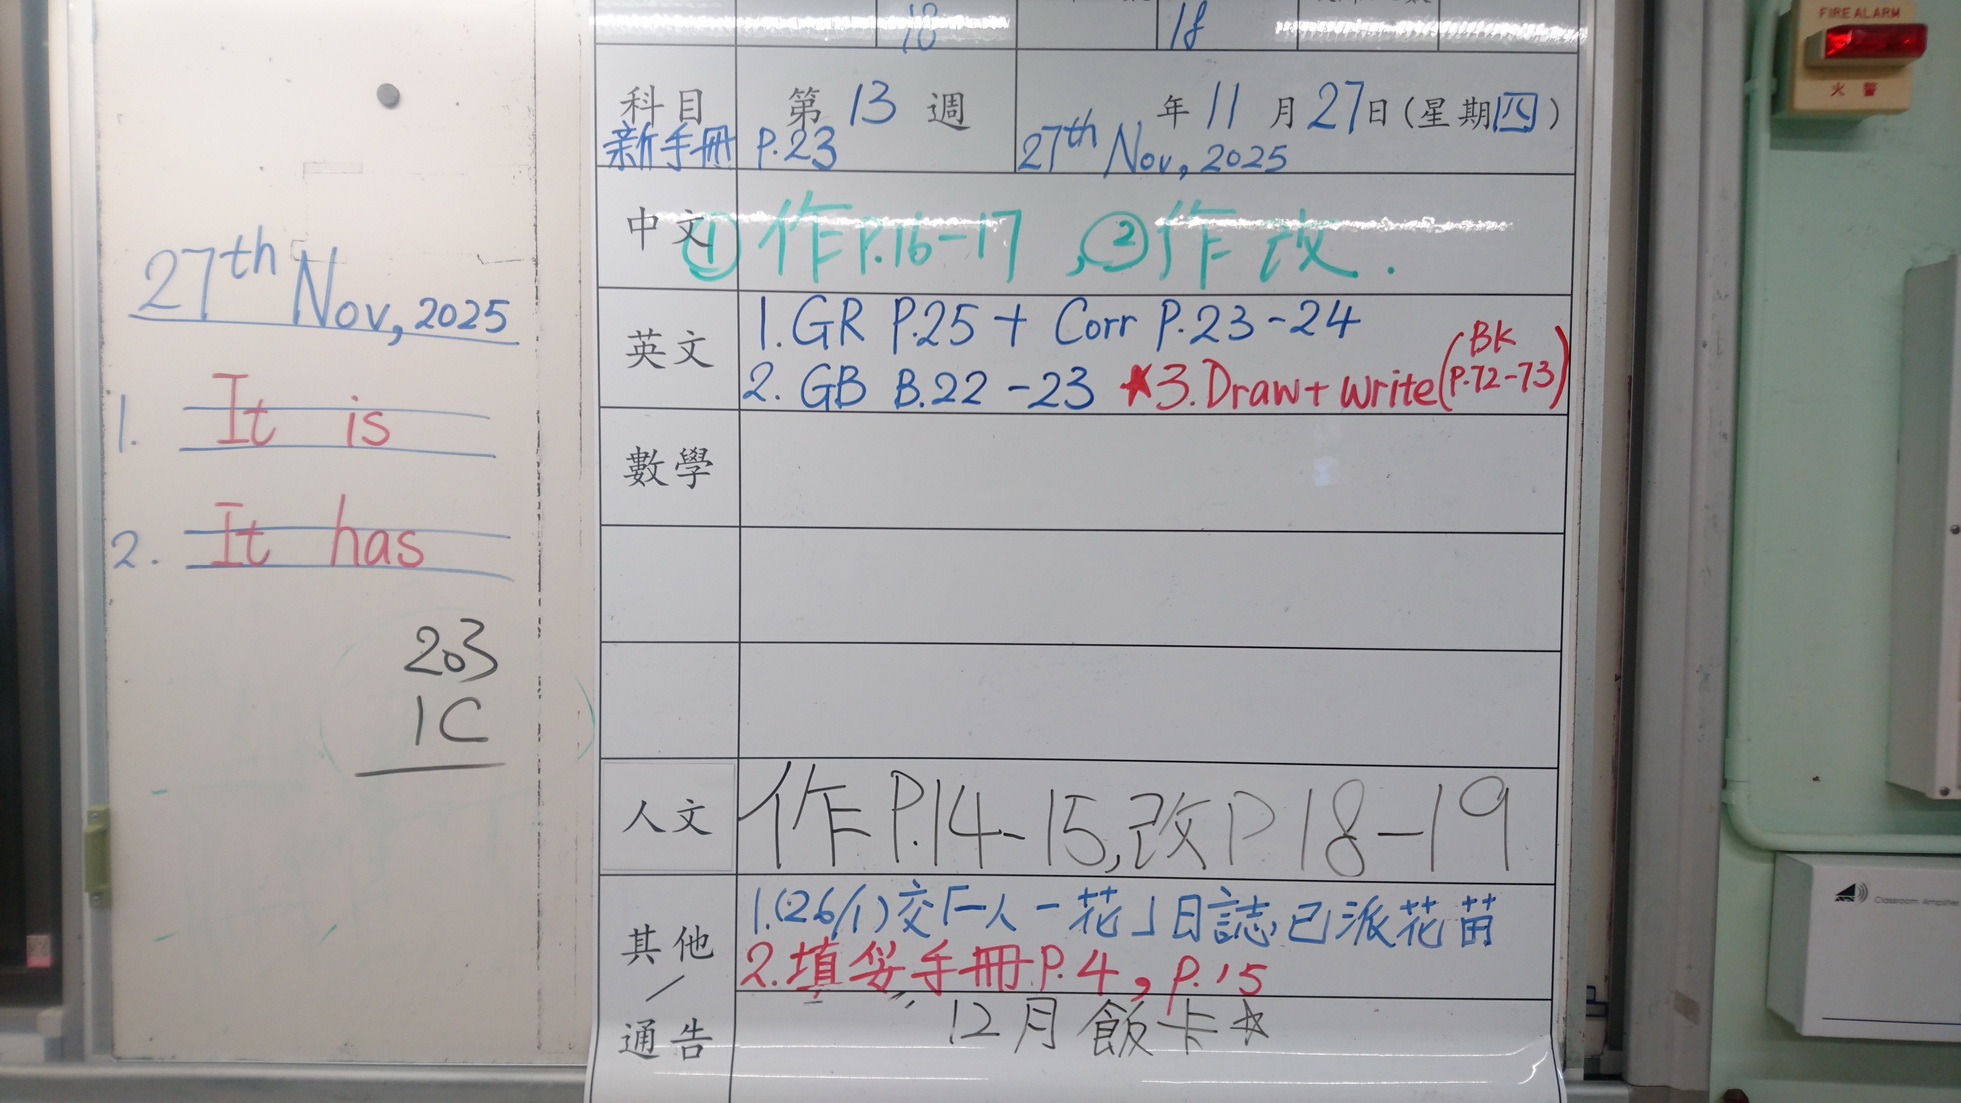 27th Nov, 2025
1. It is
2. It has
203
1C
18 18
科目 第 13 週 年 11 月 27 日 (星期四)
新手冊 P.23 27th Nov, 2025
中文 ① 作 P.16-17 , ② 作 改 .
英文 1. GR P.25 + Corr P.23-24
2. GB B.22-23 ★3. Draw + write (BK P.72-73)
數學
人文 作 P.14-15, 改 P.18-19
其他/通告 1. (26/1) 交「一人一花」日誌, 已派花苗
2. 填妥手冊 P.4, P.15
12月飯卡☆
FIRE ALARM
火警
Classroom Amplifier